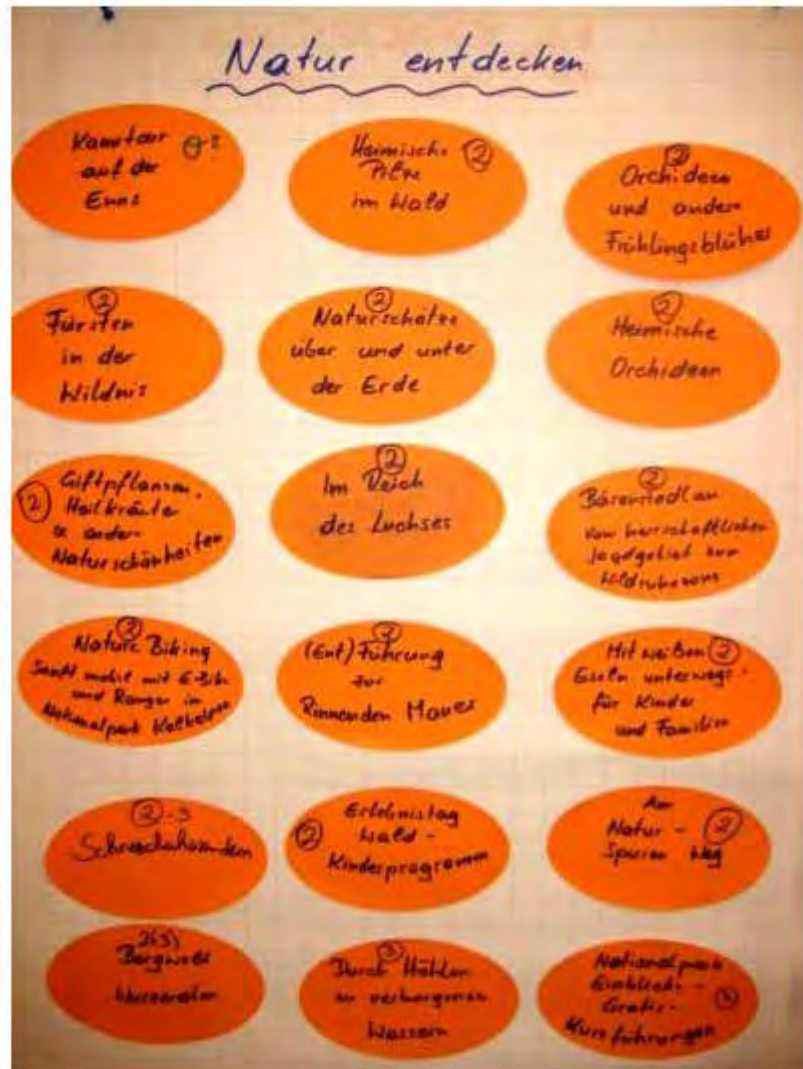 Natur entdecken
Kanutour
auf der
Enns
Heimische 2
Pilze
im Wald
2
Orchideen
und andere
Frühlingsblüher
2
Fürsten
in der
Wildnis
2
Naturschätze
über und unter
der Erde
2
Heimische
Orchideen
Giftpflanzen,
2 Heilkräuter
u. andere
Naturschönheiten
2
Im Reich
des Luchses
2
vom herrschaftlichen
Jagdgebiet zur
2
Nature Biking
Sanft mobil mit E-Bike
und Ranger im
Nationalpark Kalkalpen
2
(Ent)Führung
zur
Rinnenden Mauer
Mit weißen 2
Eseln unterwegs -
für Kinder
und Familien
2-3
Schneeschuhwandern
Erlebnistag
2 Wald -
Kinderprogramm
Am
Natur - 2
Spuren Weg
2(3)
3
Durch Höhlen
zu verborgenen
Wassern
Nationalpark
Einblicke -
Gratis -
Kurzführungen